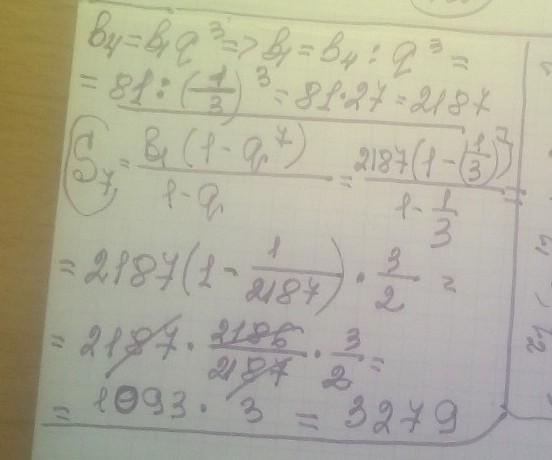 b₄=b₁q³=>b₁=b₄:q³=
=81:(1/3)³=81·27=2187
S₇=b₁(1-q⁷)/(1-q)=2187(1-(1/3)⁷)/(1-1/3)=
=2187(1-1/2187)·3/2=
=2187·2186/2187·3/2=
=1093·3=3279